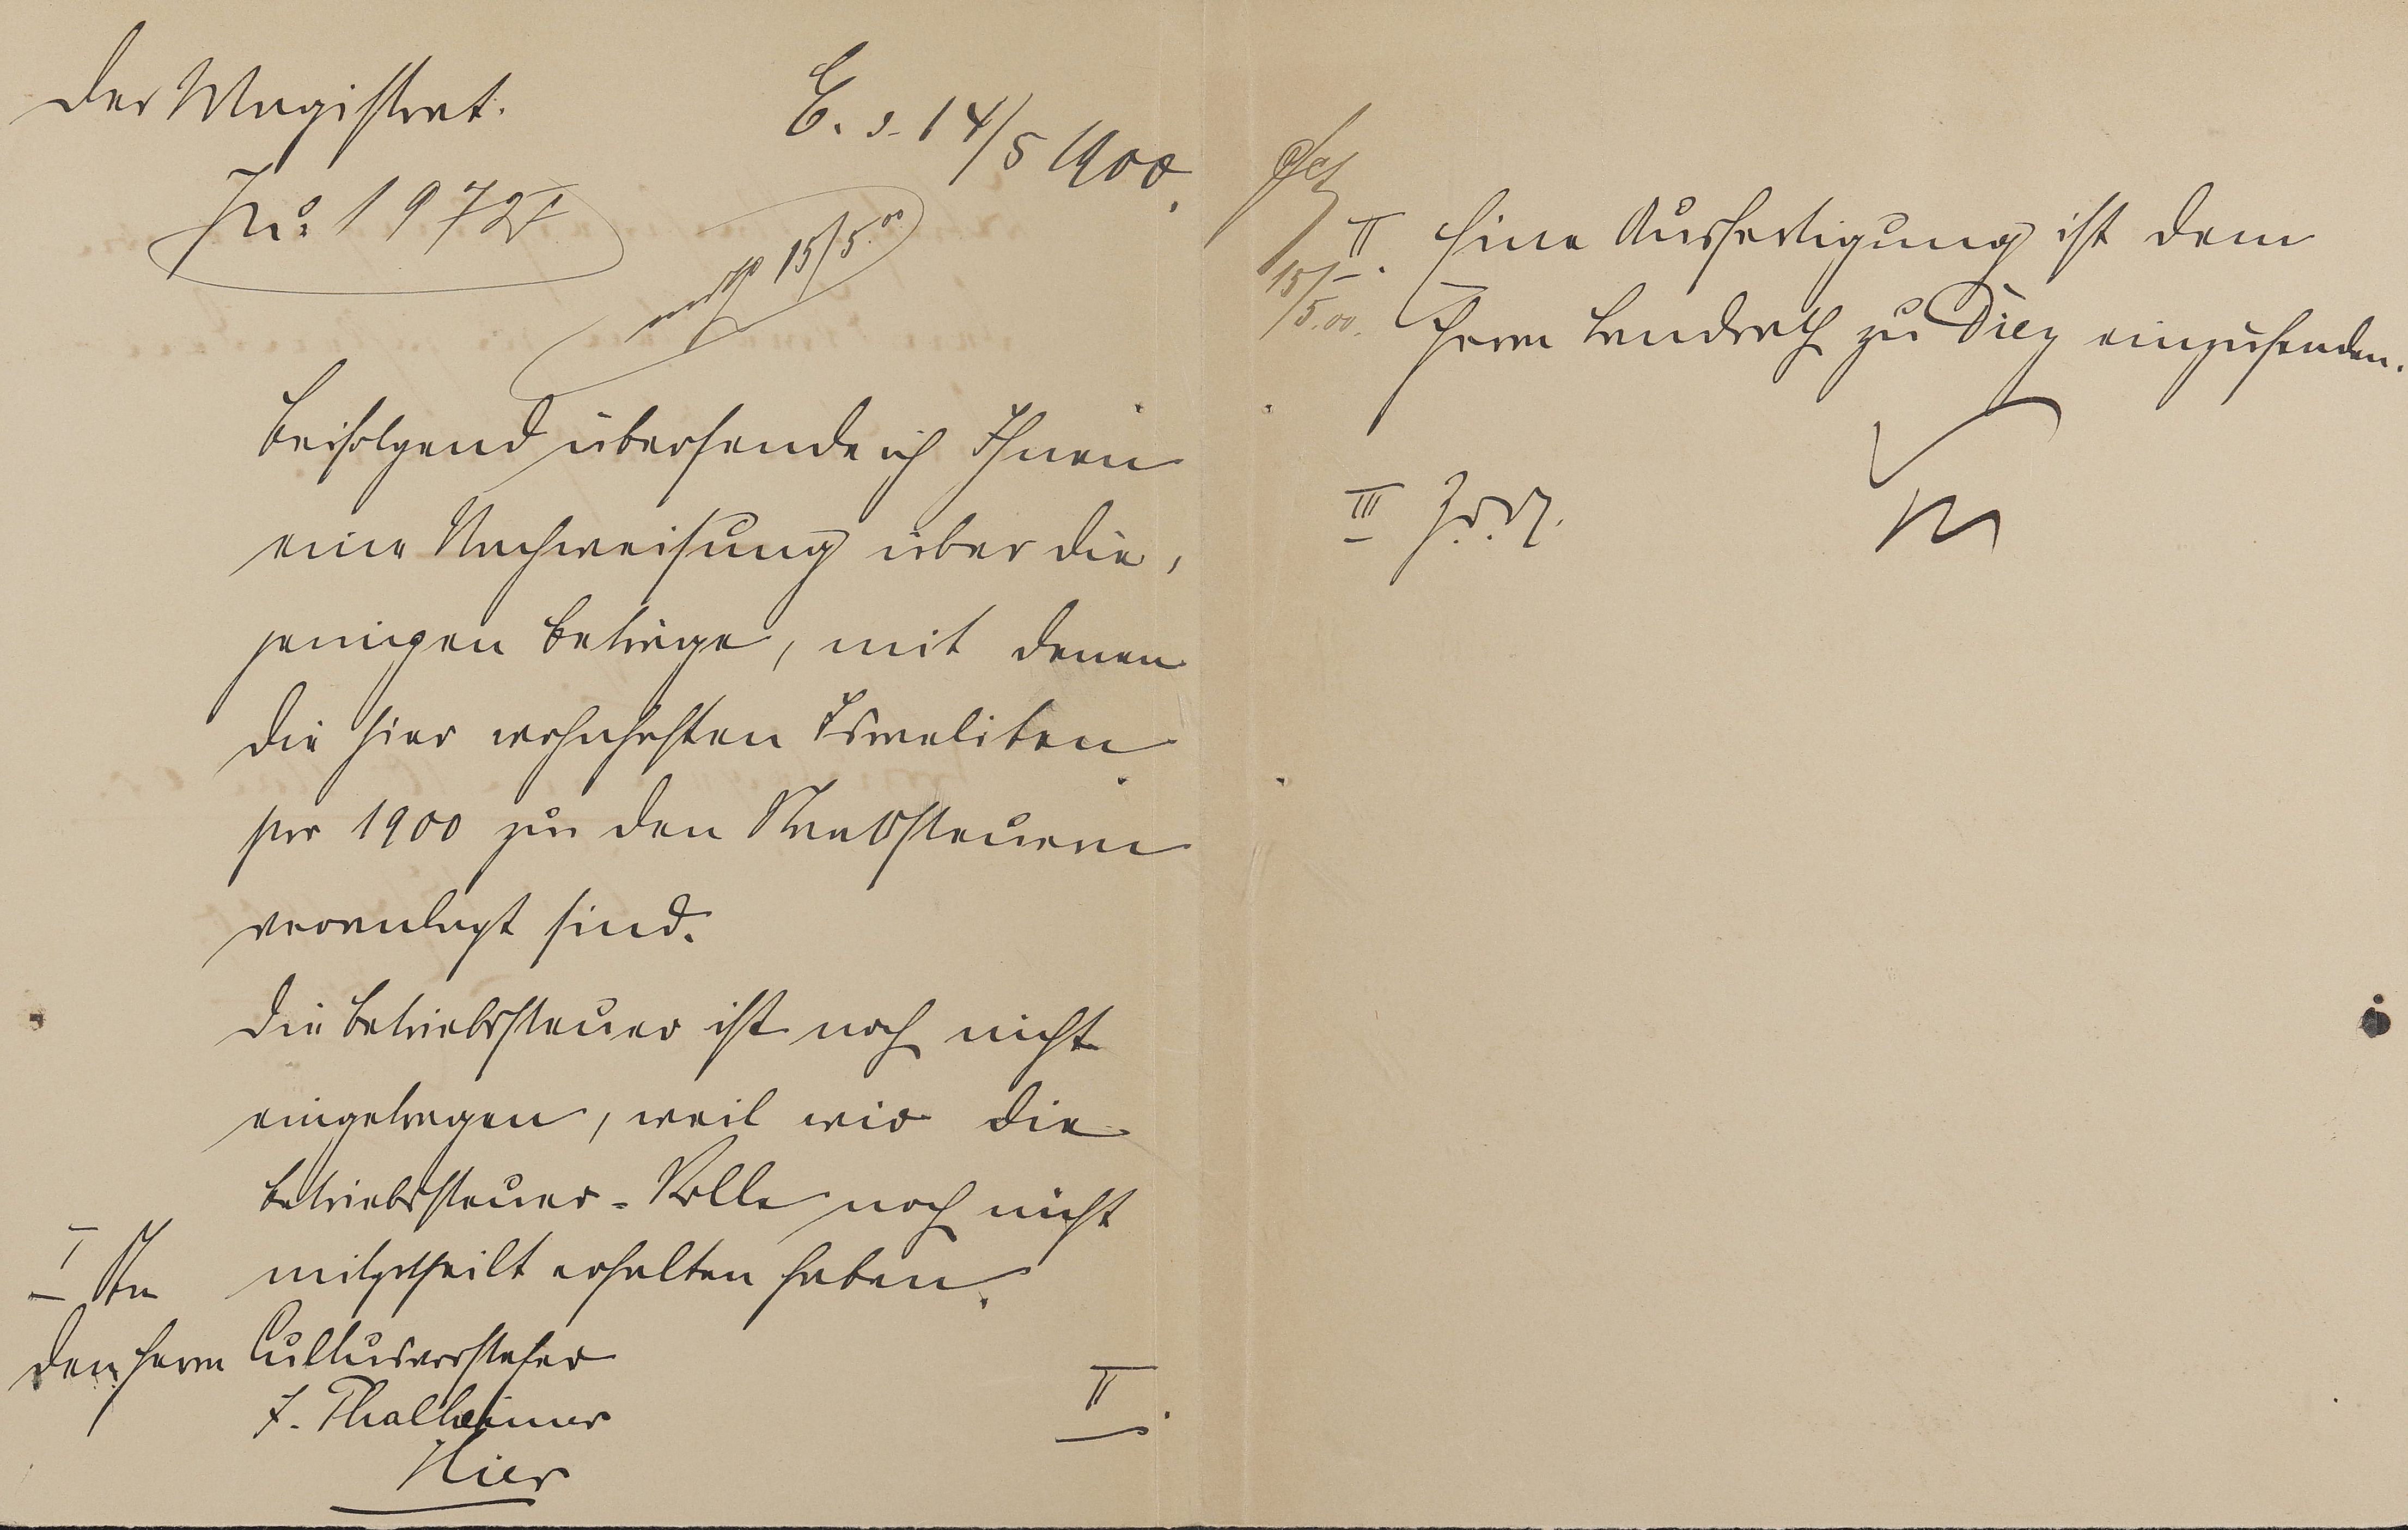 Der Magistrat.
E. d. 14/5 1900.
Nr. 1972
15/5.00
Beifolgend übersende ich Ihnen
eine Nachweisung über die,
jenigen Beträge, mit denen
die hier wohnhaften Israeliten
pro 1900 zu den Staatssteuern
veranlagt sind.
Die Betriebssteuer ist noch nicht
eingetragen, weil wir die
Betriebssteuer-Rolle noch nicht
mitgetheilt erhalten haben.
I An
den Herrn Cultusvorsteher
J. Thalheimer
Hier
II.
15/5.00.
II. Eine Ausfertigung ist dem
Herrn Landrath zu Diez einzusenden.
III Z. d. A.